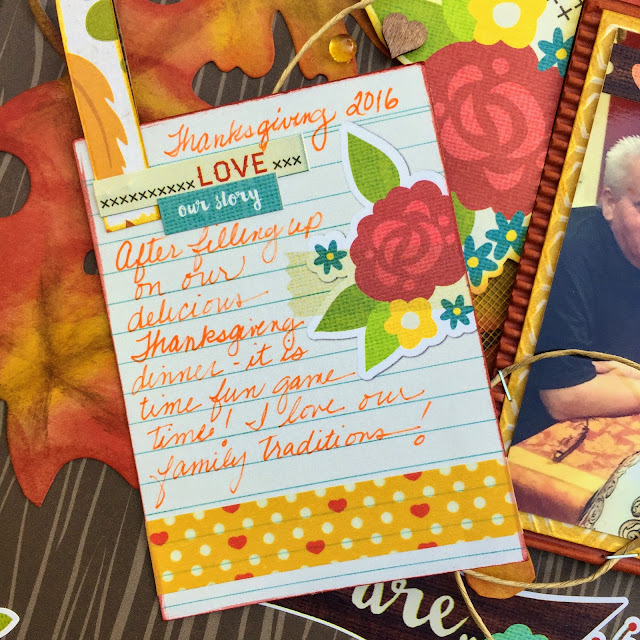 Thanksgiving 2016
xxxxxxxxxx LOVE xxx
our story
After filling up
on our
delicious
Thanksgiving
dinner - it is
time fun game
time! I love our
family traditions!
are